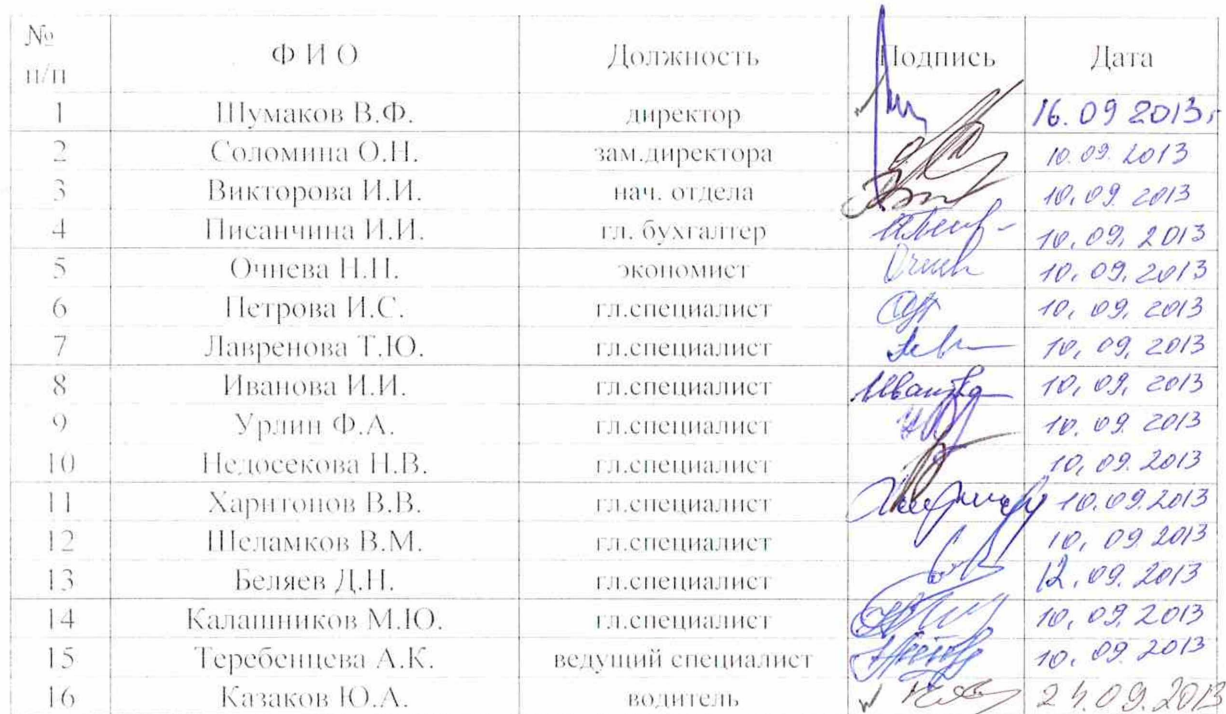 № п/п Ф И О Должность Подпись Дата
1 Шумаков В.Ф. директор 16.09 2013г
2 Соломина О.Н. зам.директора 10.09.2013
3 Викторова И.И. нач. отдела 10.09.2013
4 Писанчина И.И. гл. бухгалтер 10.09.2013
5 Очнева Н.Н. экономист 10.09.2013
6 Петрова И.С. гл.специалист 10.09.2013
7 Лавренова Т.Ю. гл.специалист 10.09.2013
8 Иванова И.И. гл.специалист 10.09.2013
9 Урлин Ф.А. гл.специалист 10.09.2013
10 Недосекова Н.В. гл.специалист 10.09.2013
11 Харитонов В.В. гл.специалист 10.09.2013
12 Шеламков В.М. гл.специалист 10.09.2013
13 Беляев Д.Н. гл.специалист 12.09.2013
14 Калашников М.Ю. гл.специалист 10.09.2013
15 Теребенцева А.К. ведущий специалист 10.09.2013
16 Казаков Ю.А. водитель 24.09.2013